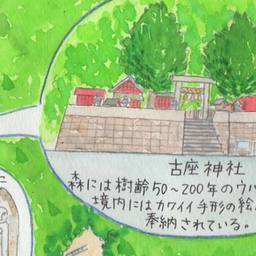 古座神社
森には樹齢50〜200年のウバ
境内にはカワイイ手形の絵
奉納されている。